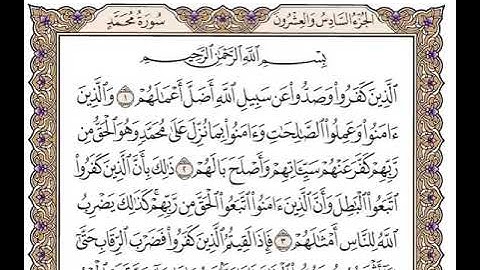 الجزء السادس والعشرون سورة محمد
بِسْمِ ٱللَّهِ ٱلرَّحْمَٰنِ ٱلرَّحِيمِ
ٱلَّذِينَ كَفَرُوا۟ وَصَدُّوا۟ عَن سَبِيلِ ٱللَّهِ أَضَلَّ أَعْمَٰلَهُمْ ١ وَٱلَّذِينَ
ءَامَنُوا۟ وَعَمِلُوا۟ ٱلصَّٰلِحَٰتِ وَءَامَنُوا۟ بِمَا نُزِّلَ عَلَىٰ مُحَمَّدٍ وَهُوَ ٱلْحَقُّ مِن
رَّبِّهِمْ كَفَّرَ عَنْهُمْ سَيِّـَٔاتِهِمْ وَأَصْلَحَ بَالَهُمْ ٢ ذَٰلِكَ بِأَنَّ ٱلَّذِينَ كَفَرُوا۟
ٱتَّبَعُوا۟ ٱلْبَٰطِلَ وَأَنَّ ٱلَّذِينَ ءَامَنُوا۟ ٱتَّبَعُوا۟ ٱلْحَقَّ مِن رَّبِّهِمْ كَذَٰلِكَ يَضْرِبُ
ٱللَّهُ لِلنَّاسِ أَمْثَٰلَهُمْ ٣ فَإِذَا لَقِيتُمُ ٱلَّذِينَ كَفَرُوا۟ فَضَرْبَ ٱلرِّقَابِ حَتَّىٰٓ